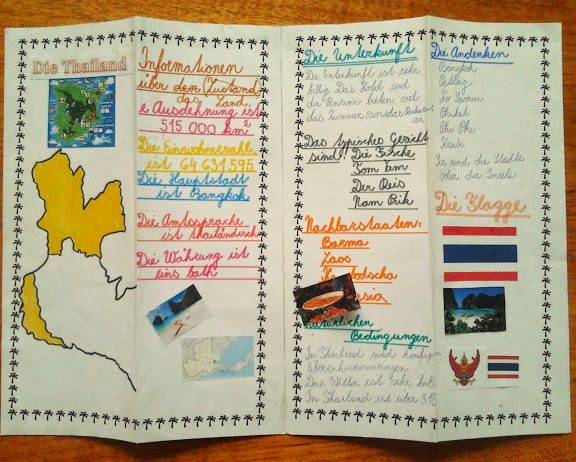 Die Thailand
Informationen
über den Zustand
das Land.
e Ausdehnung ist
515 000 km²
Die Einwohnerzahl
ist 64 631 595
Die Hauptstadt
ist Bangkok
Die Amtssprache
ist thailändisch
Die Währung ist
eins bath
Die Unterkunft
Die Unterkunft ist sehr
billig. Das Hotel und
die Pension bieten viel
das Zimmer
an
Das typisches Gericht
sind: Die Fische
Tom am
Der Reis
Nam Rik
Nachbarstaaten:
Barma
Laos
Bedingungen
In Thailand sind häufig
Überschwemmungen.
Das Wetter ist sehr heiß
In Thailand ist über
Die Andenken
Bangkok
Pattay
Ko Samui
Phuket
Phi Phi
Krabi
Sie sind die Städte
oder die Insel
Die Flagge